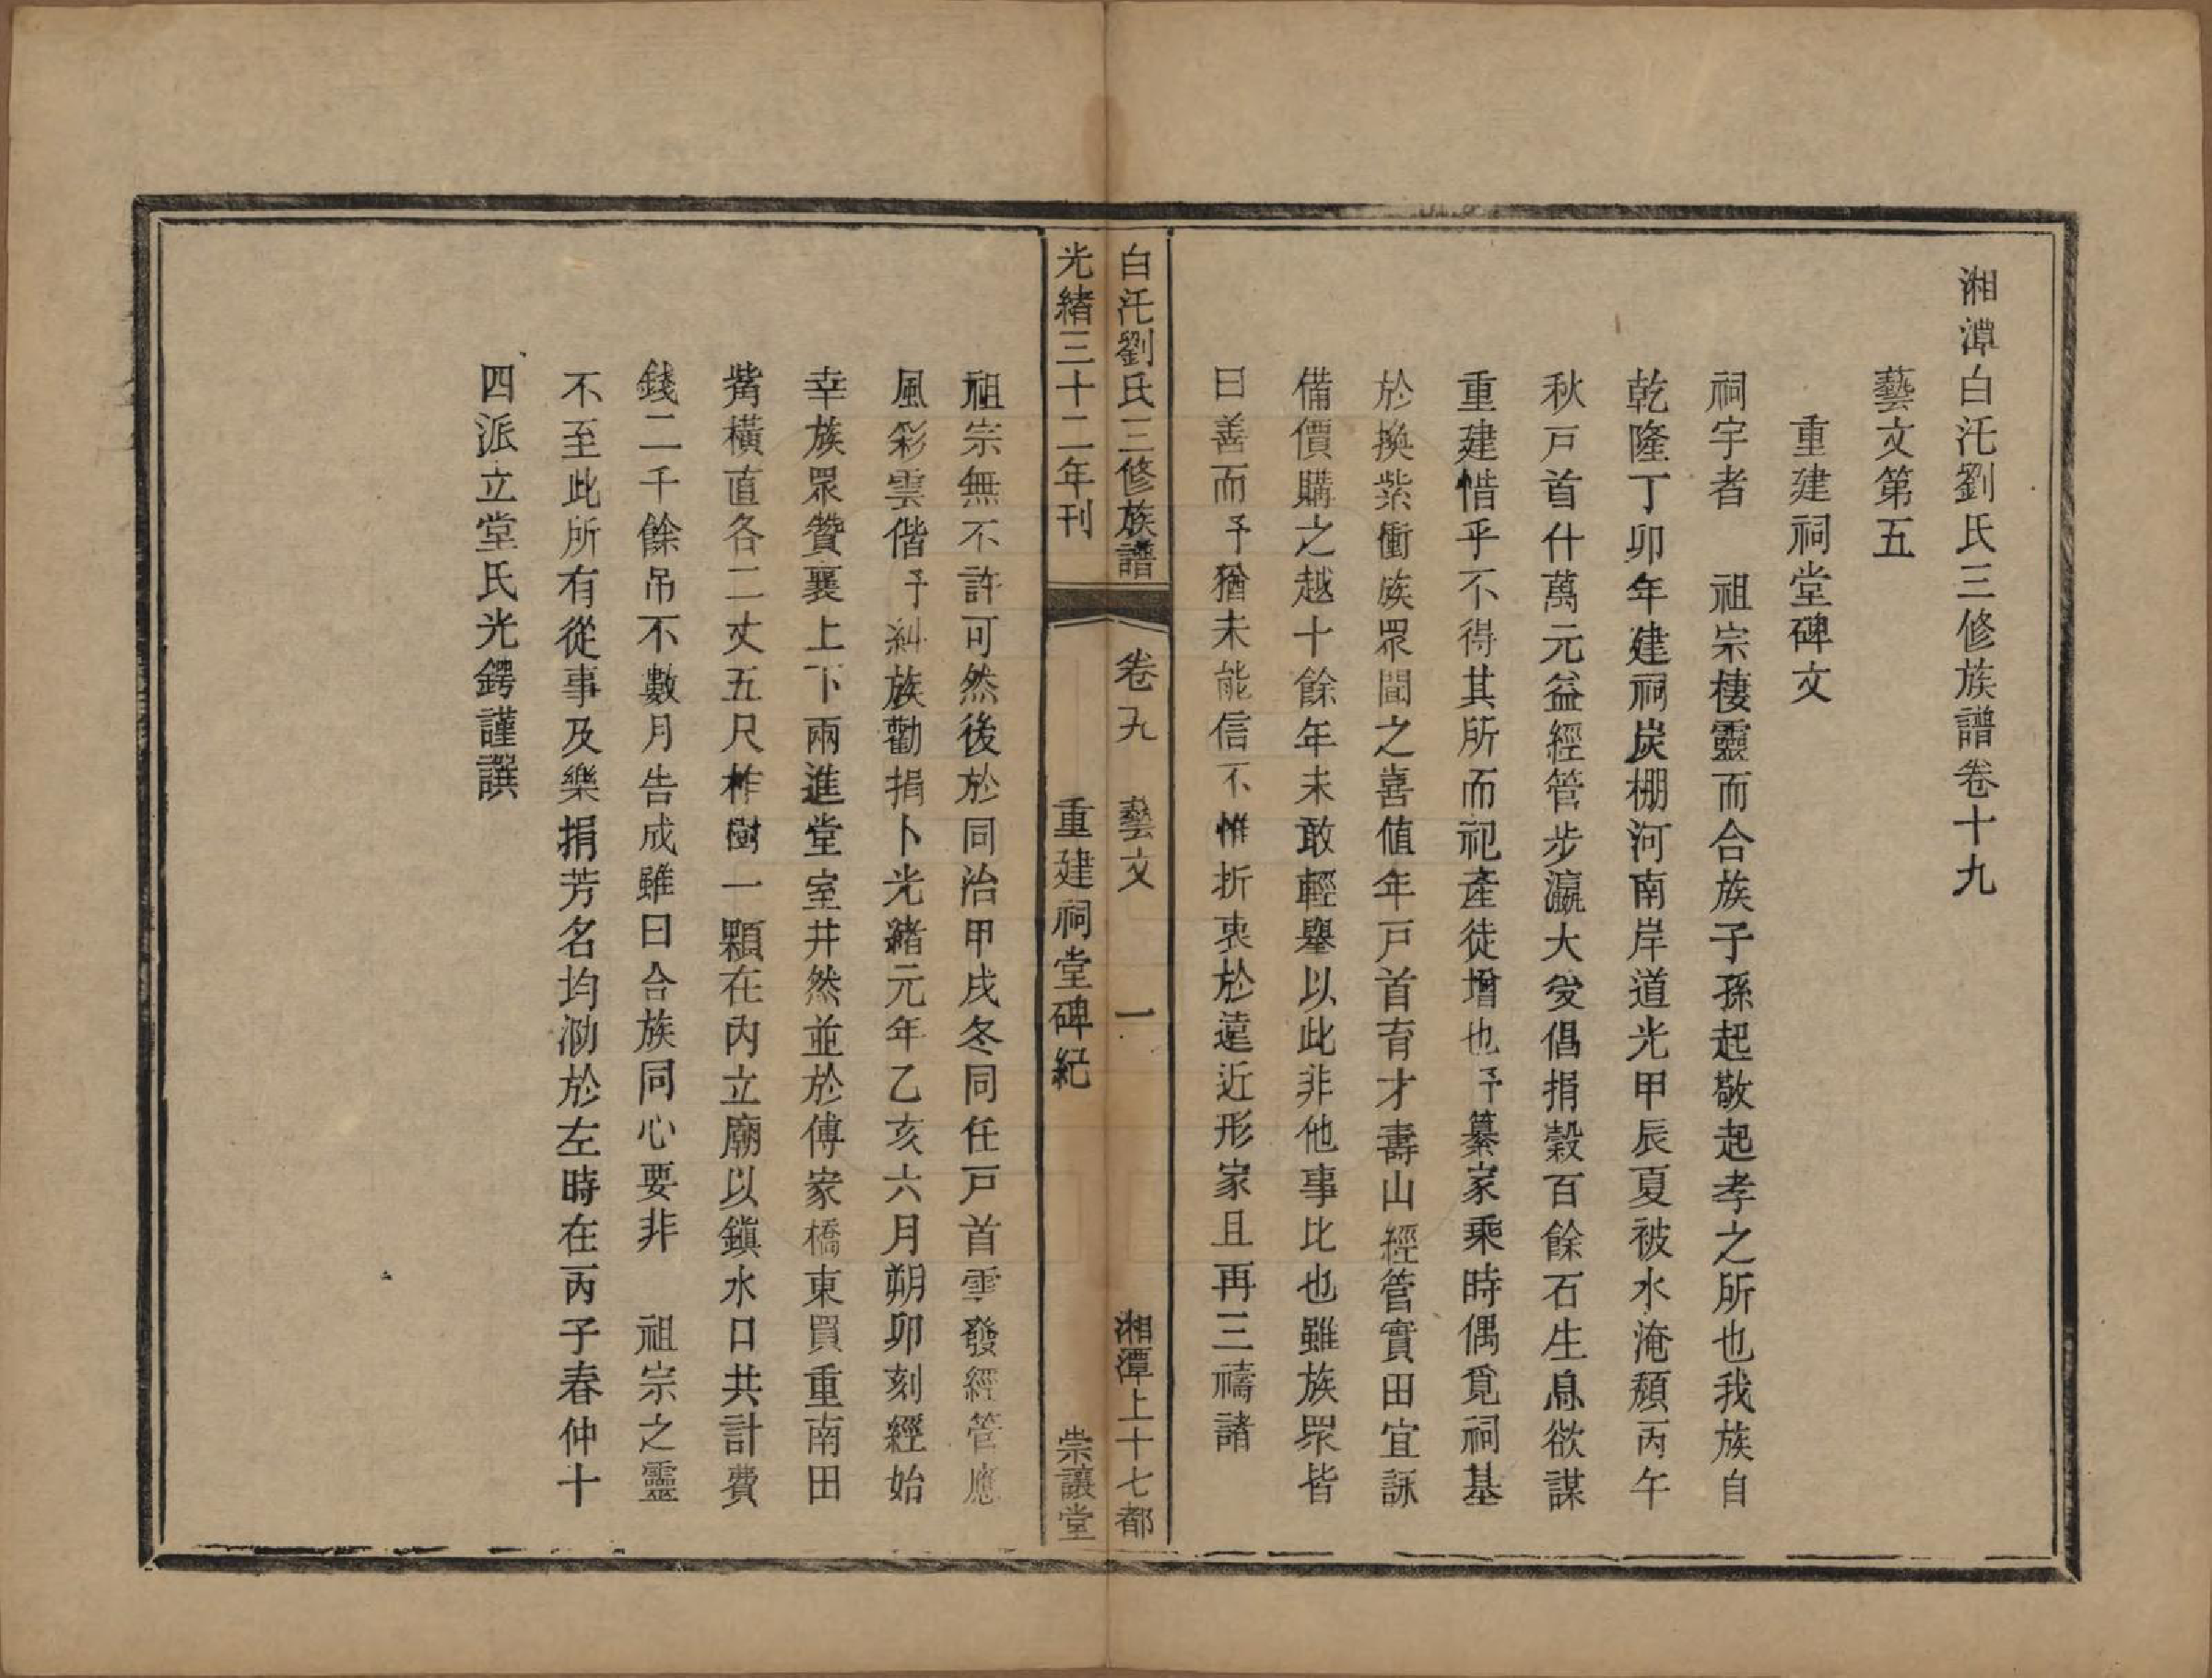 湘潭白汑劉氏三修族譜卷十九
藝文第五
重建祠堂碑文
祠宇者　祖宗棲靈而合族子孫起敬起孝之所也我族自
乾隆丁卯年建祠炭棚河南岸道光甲辰夏被水淹頹丙午
秋戸首什萬元益經管步瀛大夋倡捐穀百餘石生息欲謀
重建惜乎不得其所而祀產徒增也予纂家乘時偶覓祠基
於換紫衝族眾聞之喜值年戸首育才壽山經管實田宜詠
備價購之越十餘年未敢輕舉以此非他事比也雖族眾皆
曰善而予猶未能信不惟折衷於遠近形家且再三禱諸
白汑劉氏三修族譜　卷九　藝文　一　湘潭上十七都
光緒三十二年刊　重建祠堂碑紀　崇讓堂
祖宗無不許可然後於同治甲戌冬同任戸首雲發經管應
風彩雲偕予糾族勸捐卜光緒元年乙亥六月朔卯刻經始
幸族眾贊襄上下兩進堂室井然並於傅家橋東買重南田
觜橫直各二丈五尺柞樹一顆在內立廟以鎮水口共計費
錢二千餘吊不數月告成雖曰合族同心要非　祖宗之靈
不至此所有從事及樂捐芳名均泐於左時在丙子春仲十
四派立堂氏光鍔謹譔